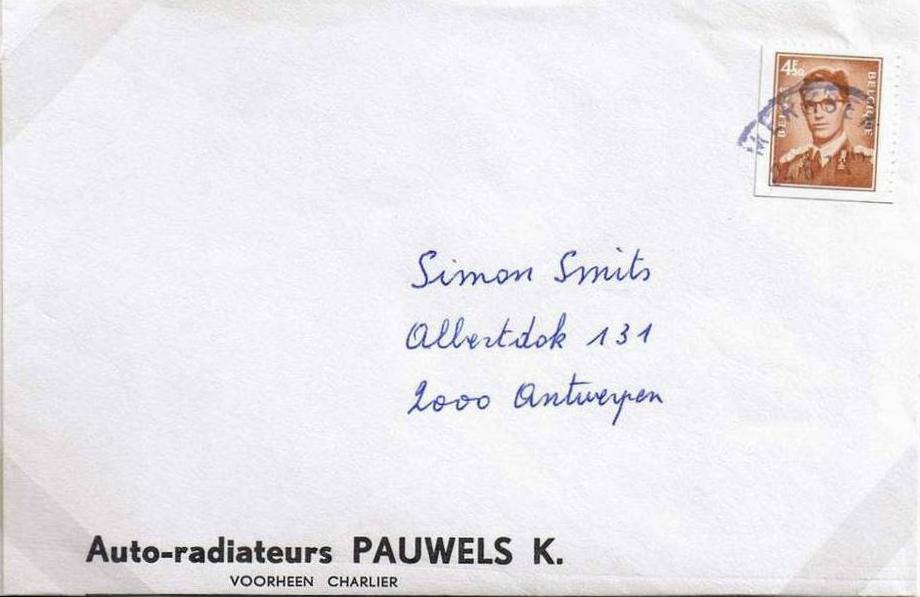 4F50
BELGIQUE
MERKSEM
Simon Smits
Albertdok 131
2000 Antwerpen
Auto-radiateurs PAUWELS K.
VOORHEEN CHARLIER